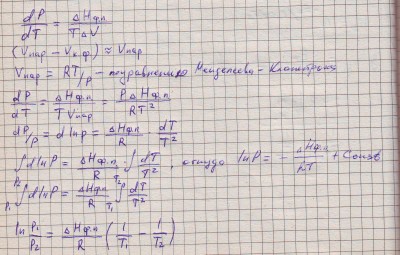 dP/dT = ΔHф.п/TΔV
(Vпар - Vк.ф) ≈ Vпар
Vпар = RT/P - по уравнению Менделеева - Клапейрона
dP/dT = ΔHф.п/TVпар = PΔHф.п/RT²
dP/P = d ln p = ΔHф.п/R · dT/T²
∫d ln P = ΔHф.п/R · ∫dT/T² , откуда ln P = - ΔHф.п/RT + Const
P₁∫P₂ d ln P = ΔHф.п/R T₁∫T₂ dT/T²
ln P₁/P₂ = ΔHф.п/R (1/T₁ - 1/T₂)